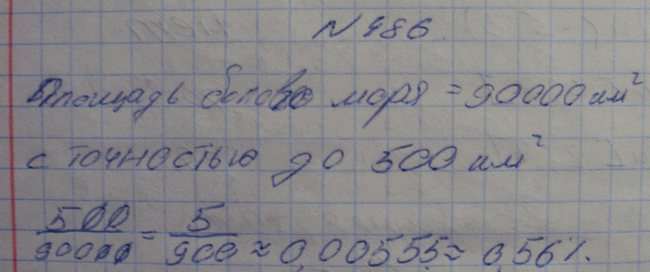 N 986
Площадь белого моря = 90000 км²
с точностью до 500 км²
500/90000 = 5/900 ≈ 0,00555 ≈ 0,56%.